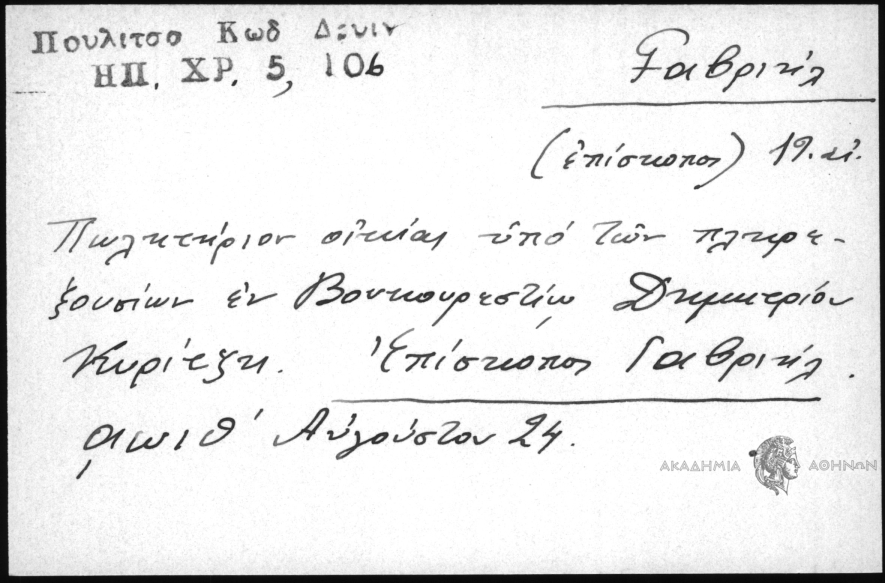 Πουλιτσα Κωδ Δρυιν
ΗΠ. ΧΡ. 5, 106
Γαβριήλ
(ἐπίσκοπος) 19. αἰ.
Πωλητήριον οἰκίας ὑπό τῶν πληρε-
ξουσίων ἐν Βουκουρεστίῳ Δημητρίου
Κυρίτζη. Ἐπίσκοπος Γαβριήλ.
͵αωιθ΄ Αὐγούστου 24.
ΑΚΑΔΗΜΙΑ ΑΘΗΝΩΝ